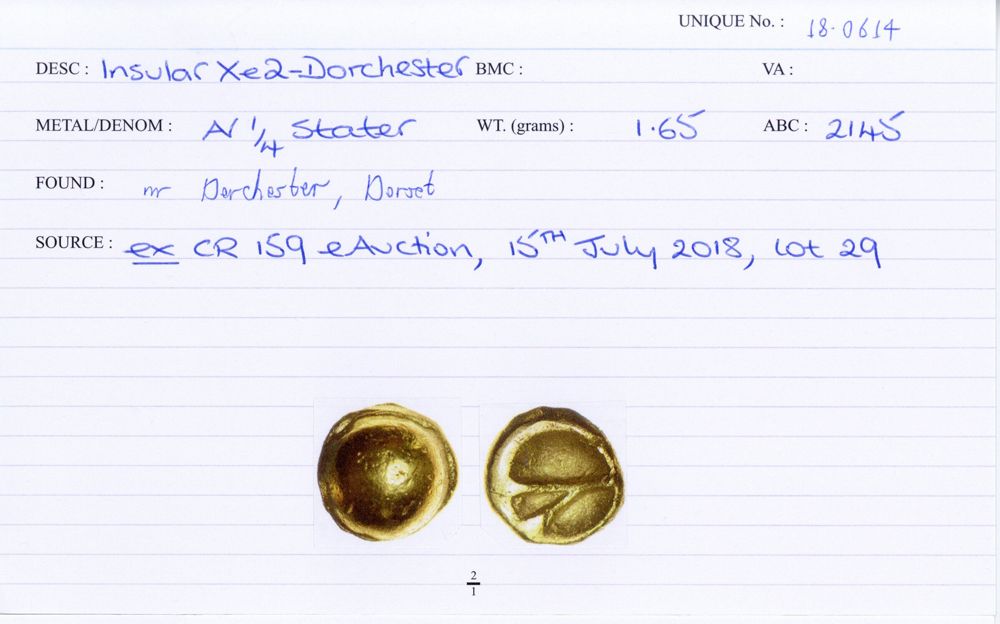 UNIQUE No. : 18.0614
DESC : Insular Xe2-Dorchester BMC : VA :
METAL/DENOM : AV 1/4 Stater WT. (grams) : 1.65 ABC : 2145
FOUND : nr Dorchester, Dorset
SOURCE : ex CR 159 eAuction, 15TH July 2018, Lot 29
2
1